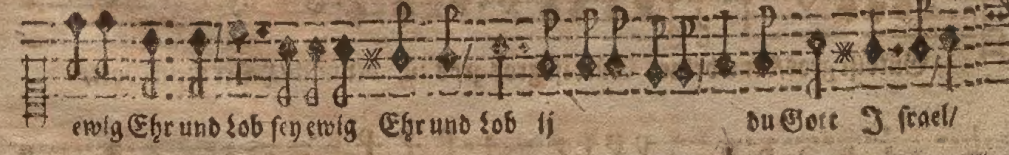 ewig Ehr und Lob sey ewig Ehr und Lob ij du Gott I srael/